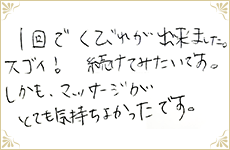 1回でくびれが出来ました。
スゴイ！ 続けてみたいです。
しかも、マッサージが
とても気持ちよかったです。